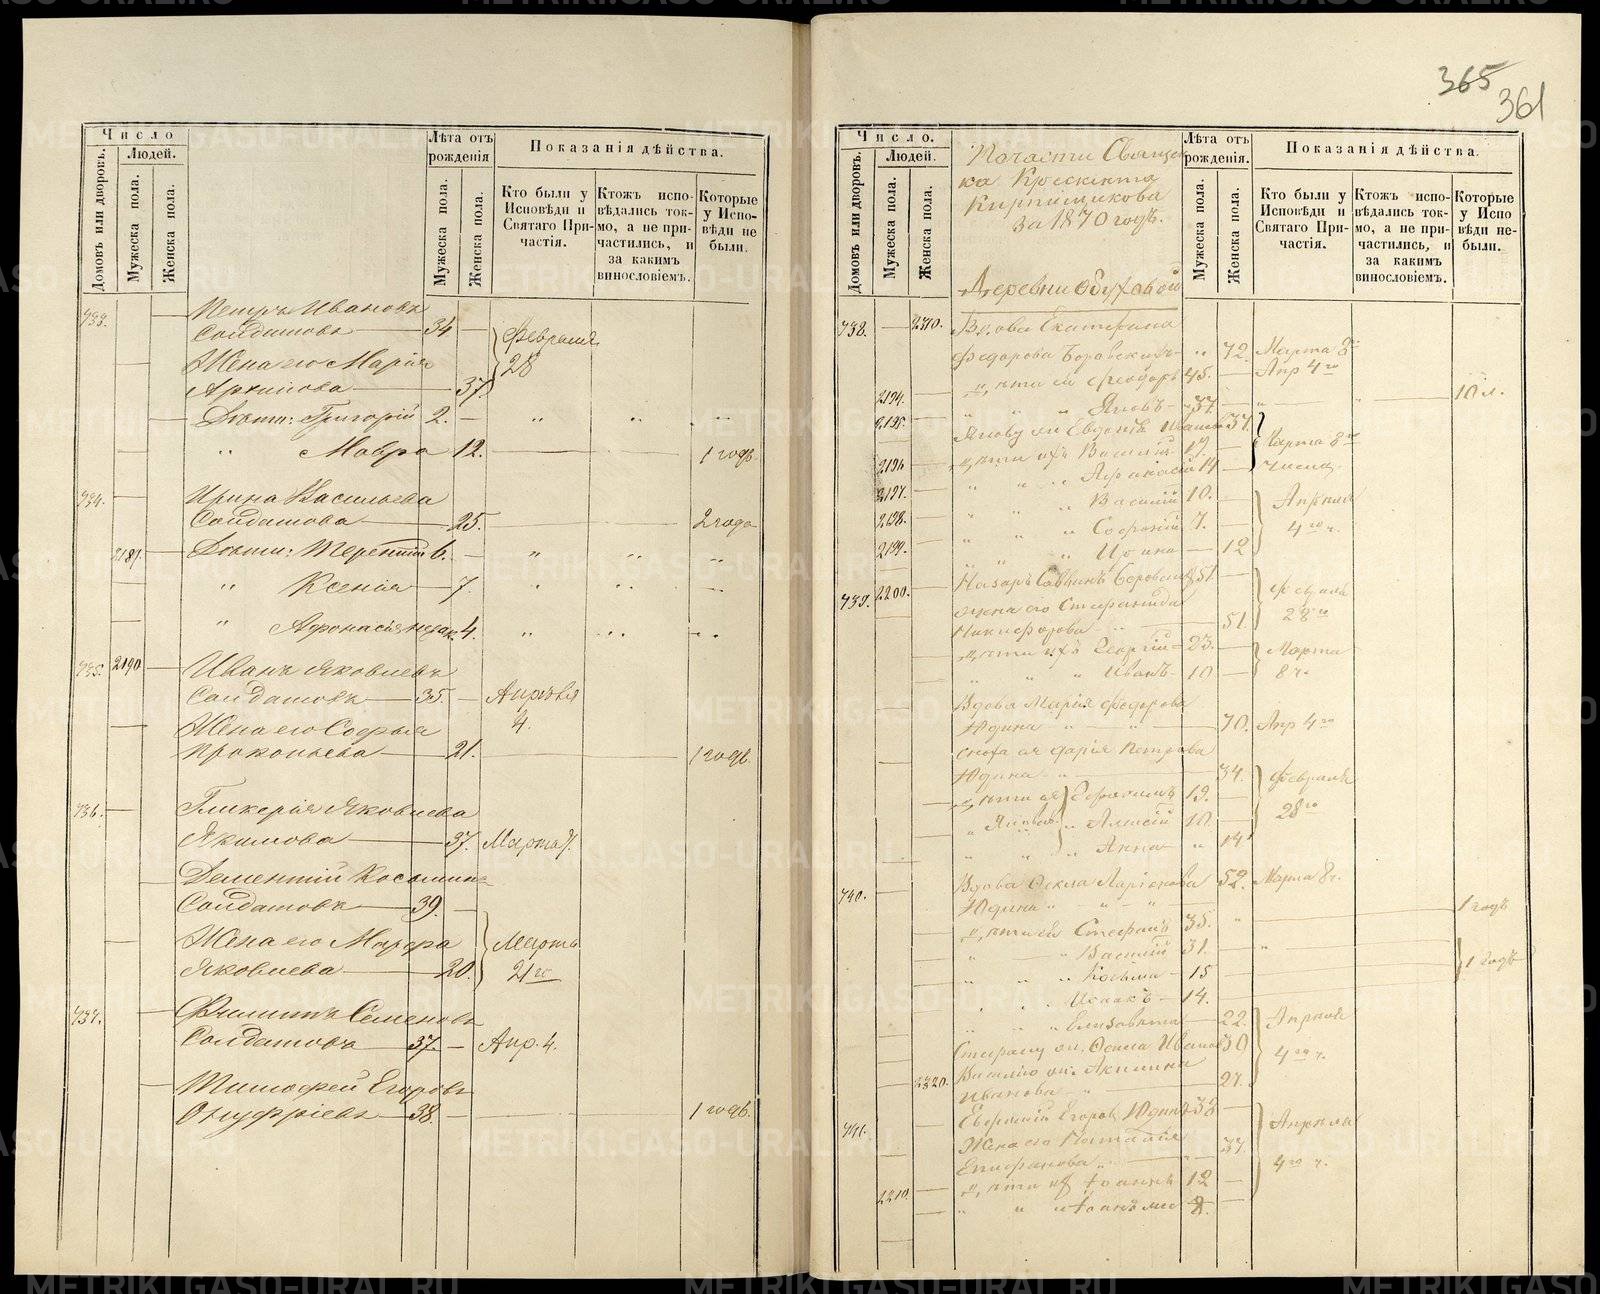 Число
Людей.
Домовъ или дворовъ.
Мужеска пола.
Женска пола.
Лѣта отъ рожденія
Мужеска пола.
Женска пола.
Показанія дѣйства.
Кто были у Исповѣди и Святаго Причастія.
Ктожъ исповѣдались токмо, а не причастились, и за какимъ винословіемъ.
Которые у Исповѣди не были.
733.
Петръ Ивановъ
Солдатовъ 34 Февраля
Жена его Марія 28
Архипова 37.
Дѣти: Григорій 2.
" Мавра 12. 1 годъ
734. Ирина Васильева
Солдатова 25. 2 года
2189 Дѣти: Терентій 6.
" Ксенія 7.
" Афонасія 4.
735. 2190 Иванъ Яковлевъ
Солдатовъ 35. Апрѣля
Жена его Софья 4.
Прокопьева 21. 1 годъ.
736. Гликерія Яковлева
Якимова 37. Марта
Дементій Косминъ
Солдатовъ 39.
Жена его Марфа Марта
Яковлева 20. 21го
737. Филиппъ Семеновъ
Солдатовъ 37. Апр. 4.
Тимофей Егоровъ
Онуфріевъ 38. 1 годъ.
365
361
Число.
Людей.
Домовъ или дворовъ.
Мужеска пола.
Женска пола.
По части Священника
Крискента
Кирпищикова
за 1870 годъ.
Лѣта отъ рожденія.
Мужеска пола.
Женска пола.
Показанія дѣйства.
Кто были у Исповѣди и Святаго Причастія.
Ктожъ исповѣдались токмо, а не причастились, и за какимъ винословіемъ.
Которые у Исповѣди не были.
Деревни Обуховой
738. 2310. Вдова Екатерина
Федорова Боровскихъ " 72. Марта 8
дѣти ея Феодоръ 45. Апр 4го
2194. " " " Яковъ 37. 10 л.
2195. Якову жн. Евдокія Иванова 37.
2196 дѣти ихъ Василій 17. Марта 8го
" " Афанасій 14 числа.
2197. " " Василій 10. Апрѣля
2198. " " Софроній 7. 4го ч.
2199. " " Ирина 12
739. 2200. Назаръ Саввинъ Боровскихъ 51. Февраля
жена его Степанида 28го
Никифорова 51.
дѣти ихъ Георгій 23. Марта
" " " Иванъ 10 8 ч.
Вдова Марія Федорова
Юдина 70. Апр 4го
сноха ея Дарія Петрова
Юдина 34. Февраля
дѣти ея Герасимъ 19. 28го
" " Алексій 10
" " " Анна " 14
740. Вдова Ѳекла Ларіонова 52. Марта 8 ч.
Юдина " " " 1 годъ
дѣти ея Стефанъ 35.
" Василій 31. 1 годъ
" " " Козьма 15
" " Исаакъ 14.
" " " Елизавета 22. Апрѣля
Стефану жн. Ѳекла Иванова 30 4го ч.
2320. Василію жн. Акилина
Иванова 27.
741. Евфимій Егоровъ Юдинъ 33
Жена его Наталія Апрѣля
Епифанова 37. 4го ч.
2210. дѣти ихъ Іоаннъ 12
" " " 8.